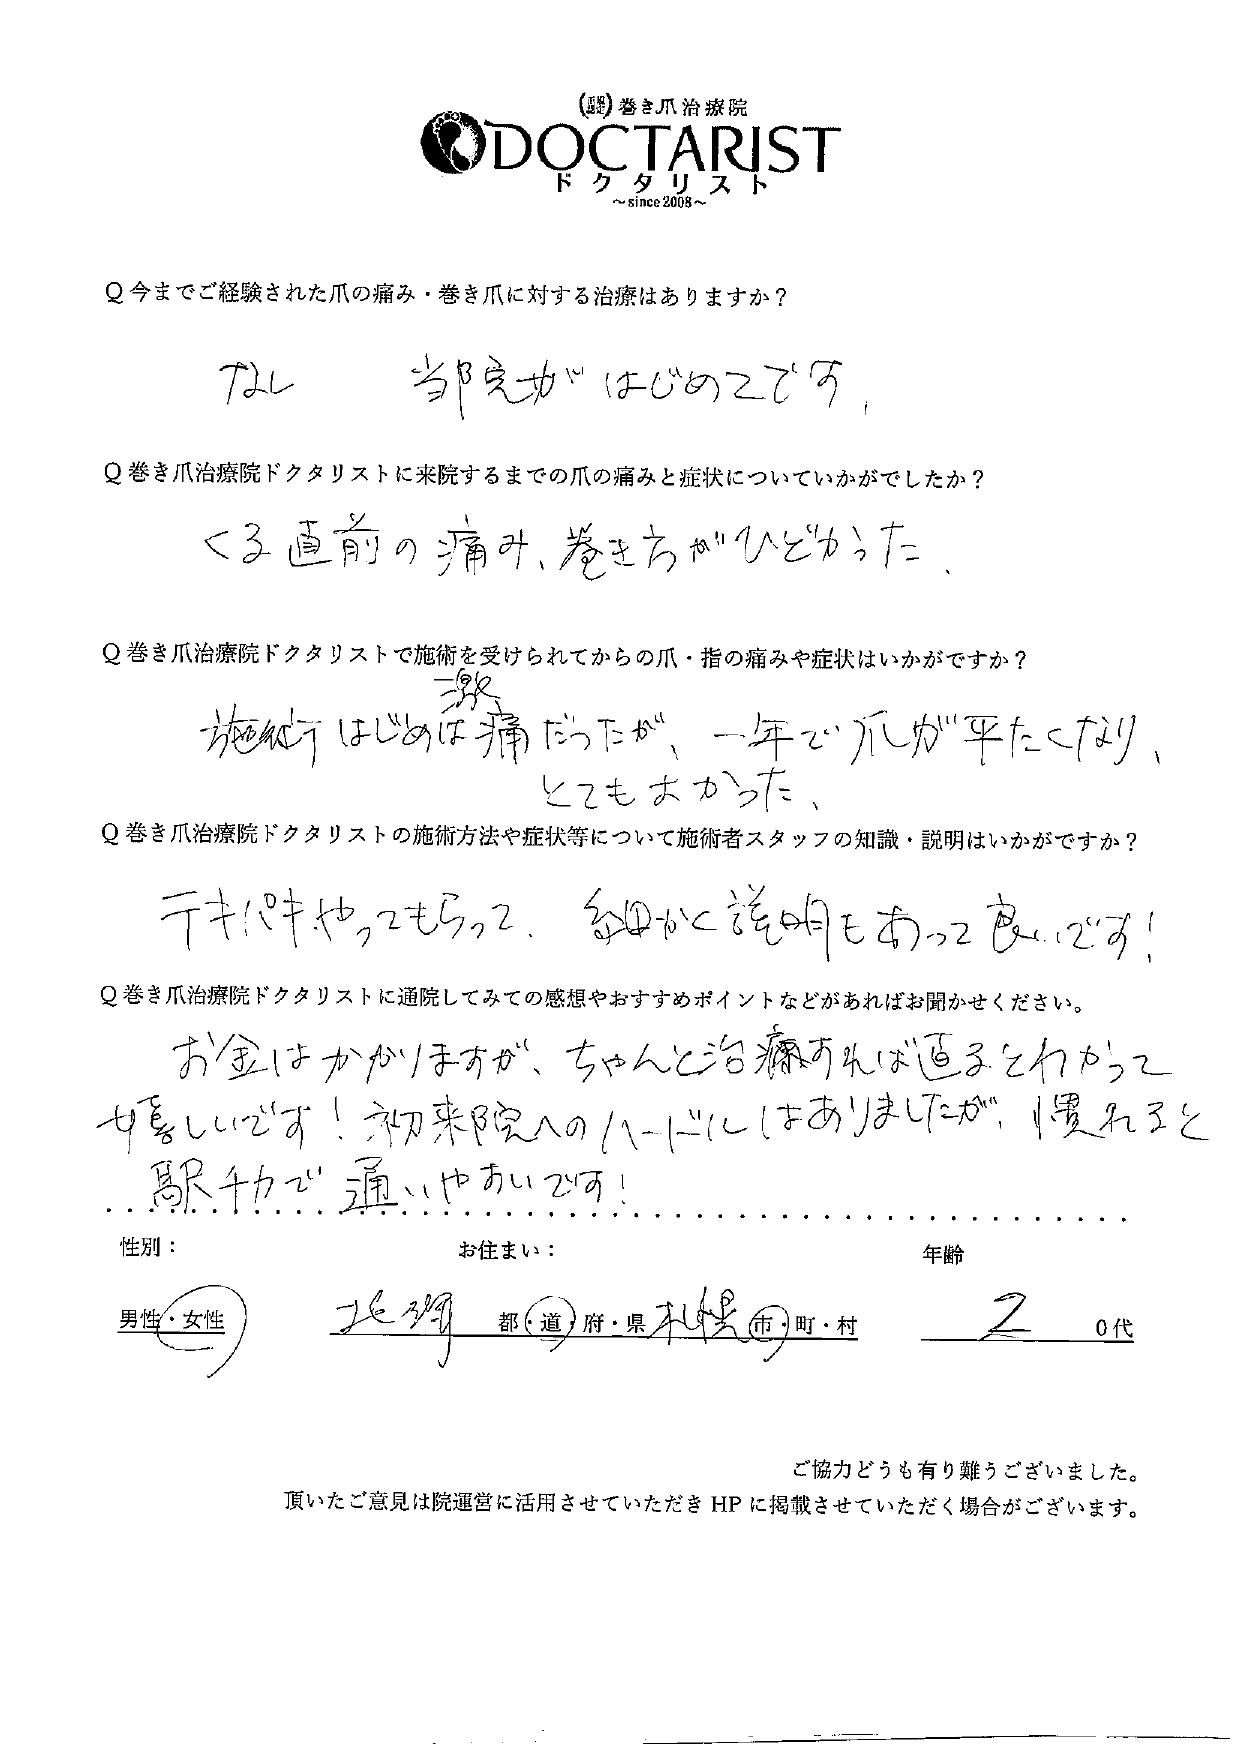 巻き爪治療院
DOCTARIST
ドクタリスト
～since2008～
Q 今までご経験された爪の痛み・巻き爪に対する治療はありますか？
なし 当院がはじめてです.
Q 巻き爪治療院ドクタリストに来院するまでの爪の痛みと症状についていかがでしたか？
くる直前の痛み、巻き方がひどかった.
Q 巻き爪治療院ドクタリストで施術を受けられてからの爪・指の痛みや症状はいかがですか？
施術はじめは激痛だったが、一年で爪が平たくなり、
とてもよかった、
Q 巻き爪治療院ドクタリストの施術方法や症状等について施術者スタッフの知識・説明はいかがですか？
テキパキやってもらって、細かく説明もあって良いです！
Q 巻き爪治療院ドクタリストに通院してみての感想やおすすめポイントなどがあればお聞かせください。
お金はかかりますが、ちゃんと治療すれば直るとわかって
嬉しいです！初来院へのハードルはありましたが、慣れると
駅チカで通いやすいです！
性別： お住まい： 年齢
男性・女性 北海 都・道・府・県 札幌 市・町・村 2 0代
ご協力どうも有り難うございました。
頂いたご意見は院運営に活用させていただき HP に掲載させていただく場合がございます。